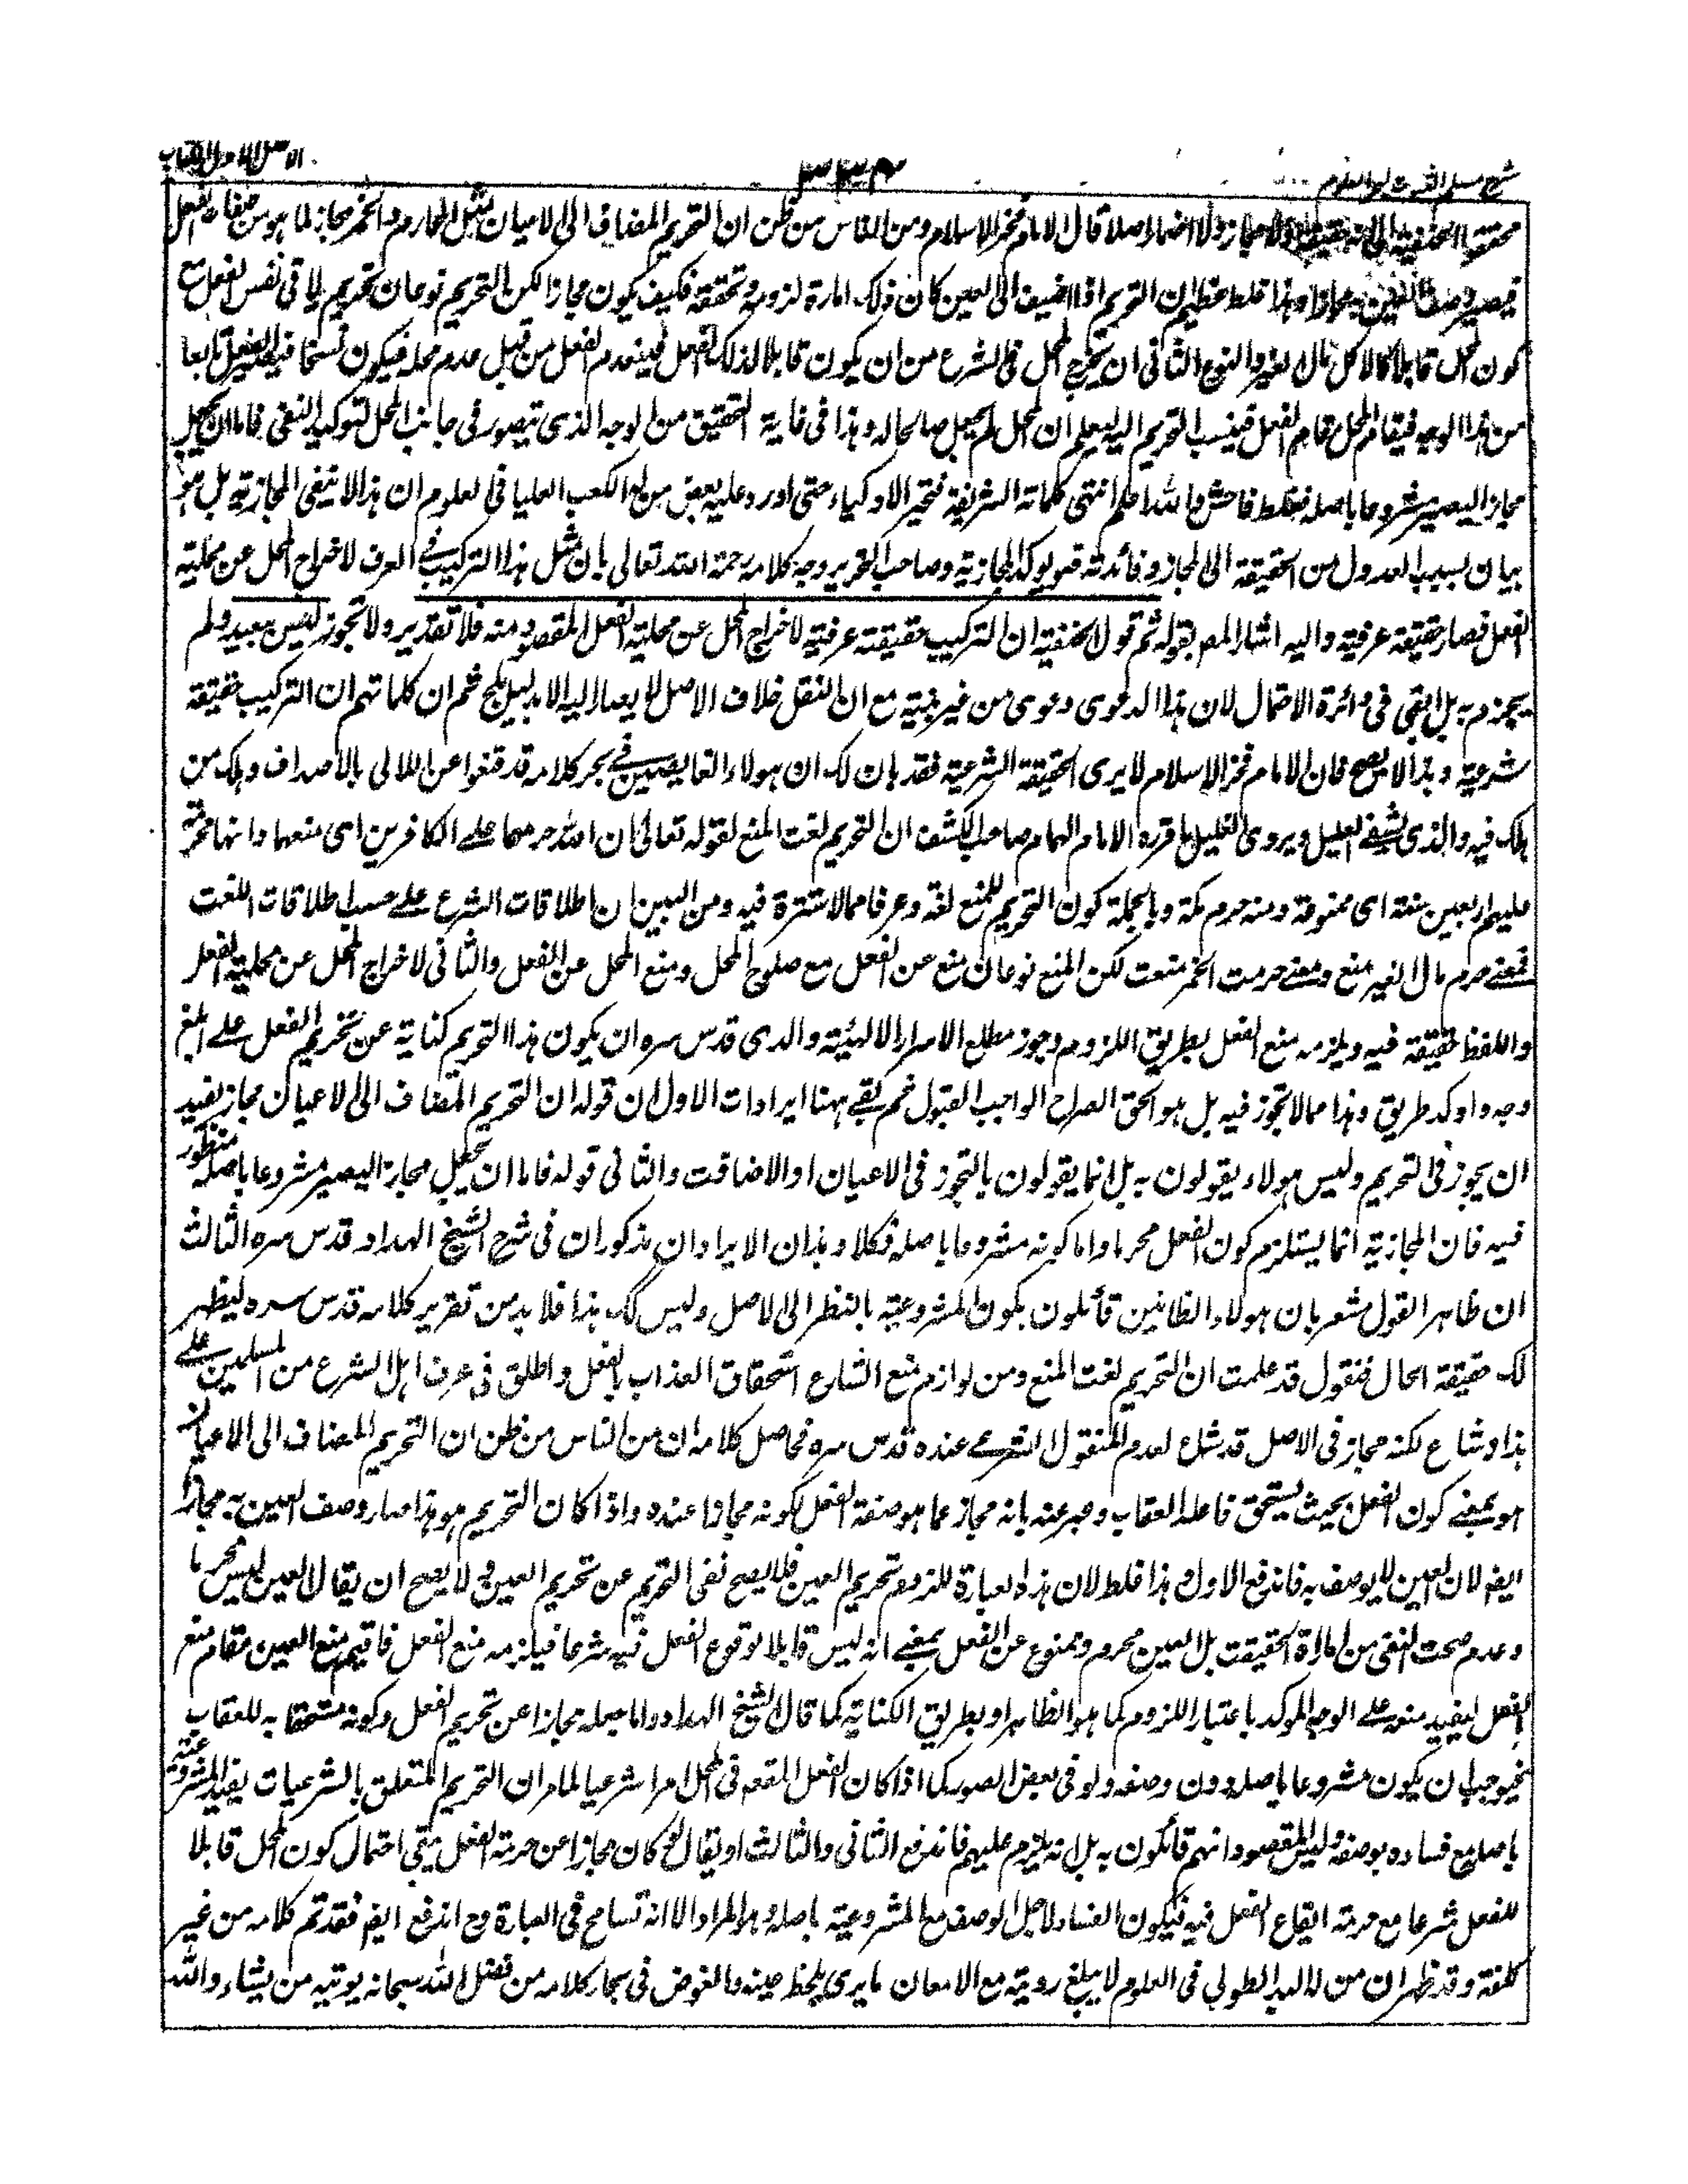 شرح مسلم الثبوت لبحر العلوم
٣٣٤
الاصل الاول الكتاب
محققوا الحنفية الى انه حقيقة ولا مجاز ولا اضمار اصلا قال الامام فخر الاسلام ومن الناس من ظن ان التحريم المضاف الى الاعيان مثل المحارم والخمر مجاز لما هو من صفات الفعل
فيصير وصف العين به مجازا وهذا غلط عظيم لان التحريم اذا اضيف الى العين كان ذلك امارة لزومه وتحققه فكيف يكون مجازا لكن التحريم نوعان تحريم يلاقى نفس الفعل مع
كون المحل قابلا كالاكل مال الغير والنوع الثانى ان يخرج المحل فى الشرع من ان يكون قابلا لذلك الفعل فينعدم الفعل من قبل عدم محله فيكون نسخا فيصير الفعل تابعا
من هذا الوجه فيقام المحل مقام الفعل فينسب التحريم اليه ليعلم ان المحل لم يجعل صالحا له وهذا فى غاية التحقيق من الوجه الذى يتصور فى جانب المحل لتوكيد النفى فاما ان يجعل
مجازا ليصير مشروعا باصله فغلط فاحش والله اعلم انتهى كلماته الشريفة فتحير الاذكياء حتى اورد عليه بعض من له الكعب العليا فى العلوم ان هذا لا ينفى المجازية بل هو
بيان بسبب العدول من الحقيقة الى المجاز وفائدته فهو يوكد المجازية وصاحب التحرير وجه كلامه رحمة الله تعالى بان مثل هذا التركيب فى العرف لاخراج المحل عن محلية
الفعل فصار حقيقة عرفية واليه اشار المص بقوله ثم قول الحنفية ان التركيب حقيقة عرفية لاخراج المحل عن محلية الفعل المقصود منه فلا تقدير ولا تجوز ليس ببعيد ولم
يجزم به بل ابقى فى دائرة الاحتمال لان هذا الدعوى دعوى من غير بينة مع ان النقل خلاف الاصل لا يصار اليه الا بدليل ملجئ ثم ان كلماتهم ان التركيب حقيقة
شرعية وهذا لا يصح فان الامام فخر الاسلام لا يرى الحقيقة الشرعية فقد بان لك ان هولاء الغائصين فى بحر كلامه قد قنعوا عن اللالى بالاصداف وهلك من
هلك فيه والذى يشفى العليل ويروى الغليل ما قرره الامام الهمام صاحب الكشف ان التحريم لغت المنع لقوله تعالى ان الله حرمهما على الكافرين اى منعهما وانها محرمة
عليهم اربعين سنة اى ممنوعة ومنه حرم مكة وبالجملة كون التحريم للمنع لغة وعرفا مما لا سترة فيه ومن البين ان اطلاقات الشرع على حسب اطلاقات اللغت
فمعنى حرم مال الغير منع ومعنى حرمت الخمر منعت لكن المنع نوعان منع عن الفعل مع صلوح المحل ومنع المحل عن الفعل والثانى لاخراج المحل عن محلية الفعل
واللفظ حقيقة فيه ويلزمه منع الفعل بطريق اللزوم وجوز مطلع الاسرار الالهية والدى قدس سره ان يكون هذا التحريم كناية عن تحريم الفعل على ابلغ
وجه واوكد طريق وهذا مما لا تجوز فيه بل هو الحق الصراح الواجب القبول ثم بقى ههنا ايرادات الاول ان قوله ان التحريم المضاف الى الاعيان مجاز يفيد
ان يجوز فى التحريم وليس هولاء يقولون به بل انما يقولون بالتجوز فى الاعيان او الاضافت والثانى قوله فاما ان يجعل مجازا ليصير مشروعا باصله منظور
فيه فان المجازية انما يستلزم كون الفعل محرما واما كونه مشروعا باصله فكلا وهذان الايرادان مذكوران فى شرح الشيخ الهداد قدس سره الثالث
ان ظاهر القول مشعر بان هولاء الظانين قائلون بكون المشروعية بالنظر الى الاصل وليس كك هذا فلا بد من تقرير كلامه قدس سره ليظهر
لك حقيقة الحال فنقول قد علمت ان التحريم لغت المنع ومن لوازم منع الشارع استحقاق العذاب بالفعل واطلق فى عرف اهل الشرع من المسلمين على
هذا وشاع لكنه مجاز فى الاصل قد شاع لعدم المنقول الشرعى عنده قدس سره فحاصل كلامه ان من الناس من ظن ان التحريم المضاف الى الاعيان
هو بمعنى كون الفعل بحيث يستحق فاعله العقاب وعبر عنه بانه مجاز عما هو صفة الفعل لكونه مجازا عنده واذا كان التحريم هو هذا صار وصف العين به مجازا
ايض لان العين لا يوصف به فاندفع الاول وهذا غلط لان هذه العبارة للزوم تحريم العين فلا يصح نفى التحريم عن تحريم العين ولا يصح ان يقال العين ليس محرما
وعدم صحت النفى من امارة الحقيقت بل العين محرم وممنوع عن الفعل بمعنى انه ليس قابلا لوقوع الفعل فيه شرعا فيلزمه منع الفعل فاقيم منع العين مقام منع
الفعل ليفيد منعه على الوجه الموكد باعتبار اللزوم كما هو الظاهر او بطريق الكناية كما قال الشيخ الهداد واما جعله مجازا عن تحريم الفعل وكونه مستحقا به للعقاب
فيوجب ان يكون مشروعا باصله دون وصفه ولو فى بعض الصور كما اذا كان الفعل المقصود فى المحل امرا شرعيا لما مر ان التحريم المتعلق بالشرعيات يفيد المشروعية
باصله مع فساده بوصفه وليس المقصود انهم قائلون به بل انه يلزم عليهم فاندفع الثانى والثالث او يقال لو كان مجازا عن حرمة الفعل يبقى احتمال كون المحل قابلا
للفعل شرعا مع حرمة ايقاع الفعل فيه فيكون الفساد لاجل الوصف مع المشروعية باصله وهو المراد الا انه تسامح فى العبارة وح اندفع ايض فقد تم كلامه من غير
كلفة وقد ظهر ان من له اليد الطولى فى العلوم لا يبلغ رويته مع الامعان ما يرى بلحظ عينه والغوض فى بحار كلامه من فضل الله سبحانه يوتيه من يشاء والله